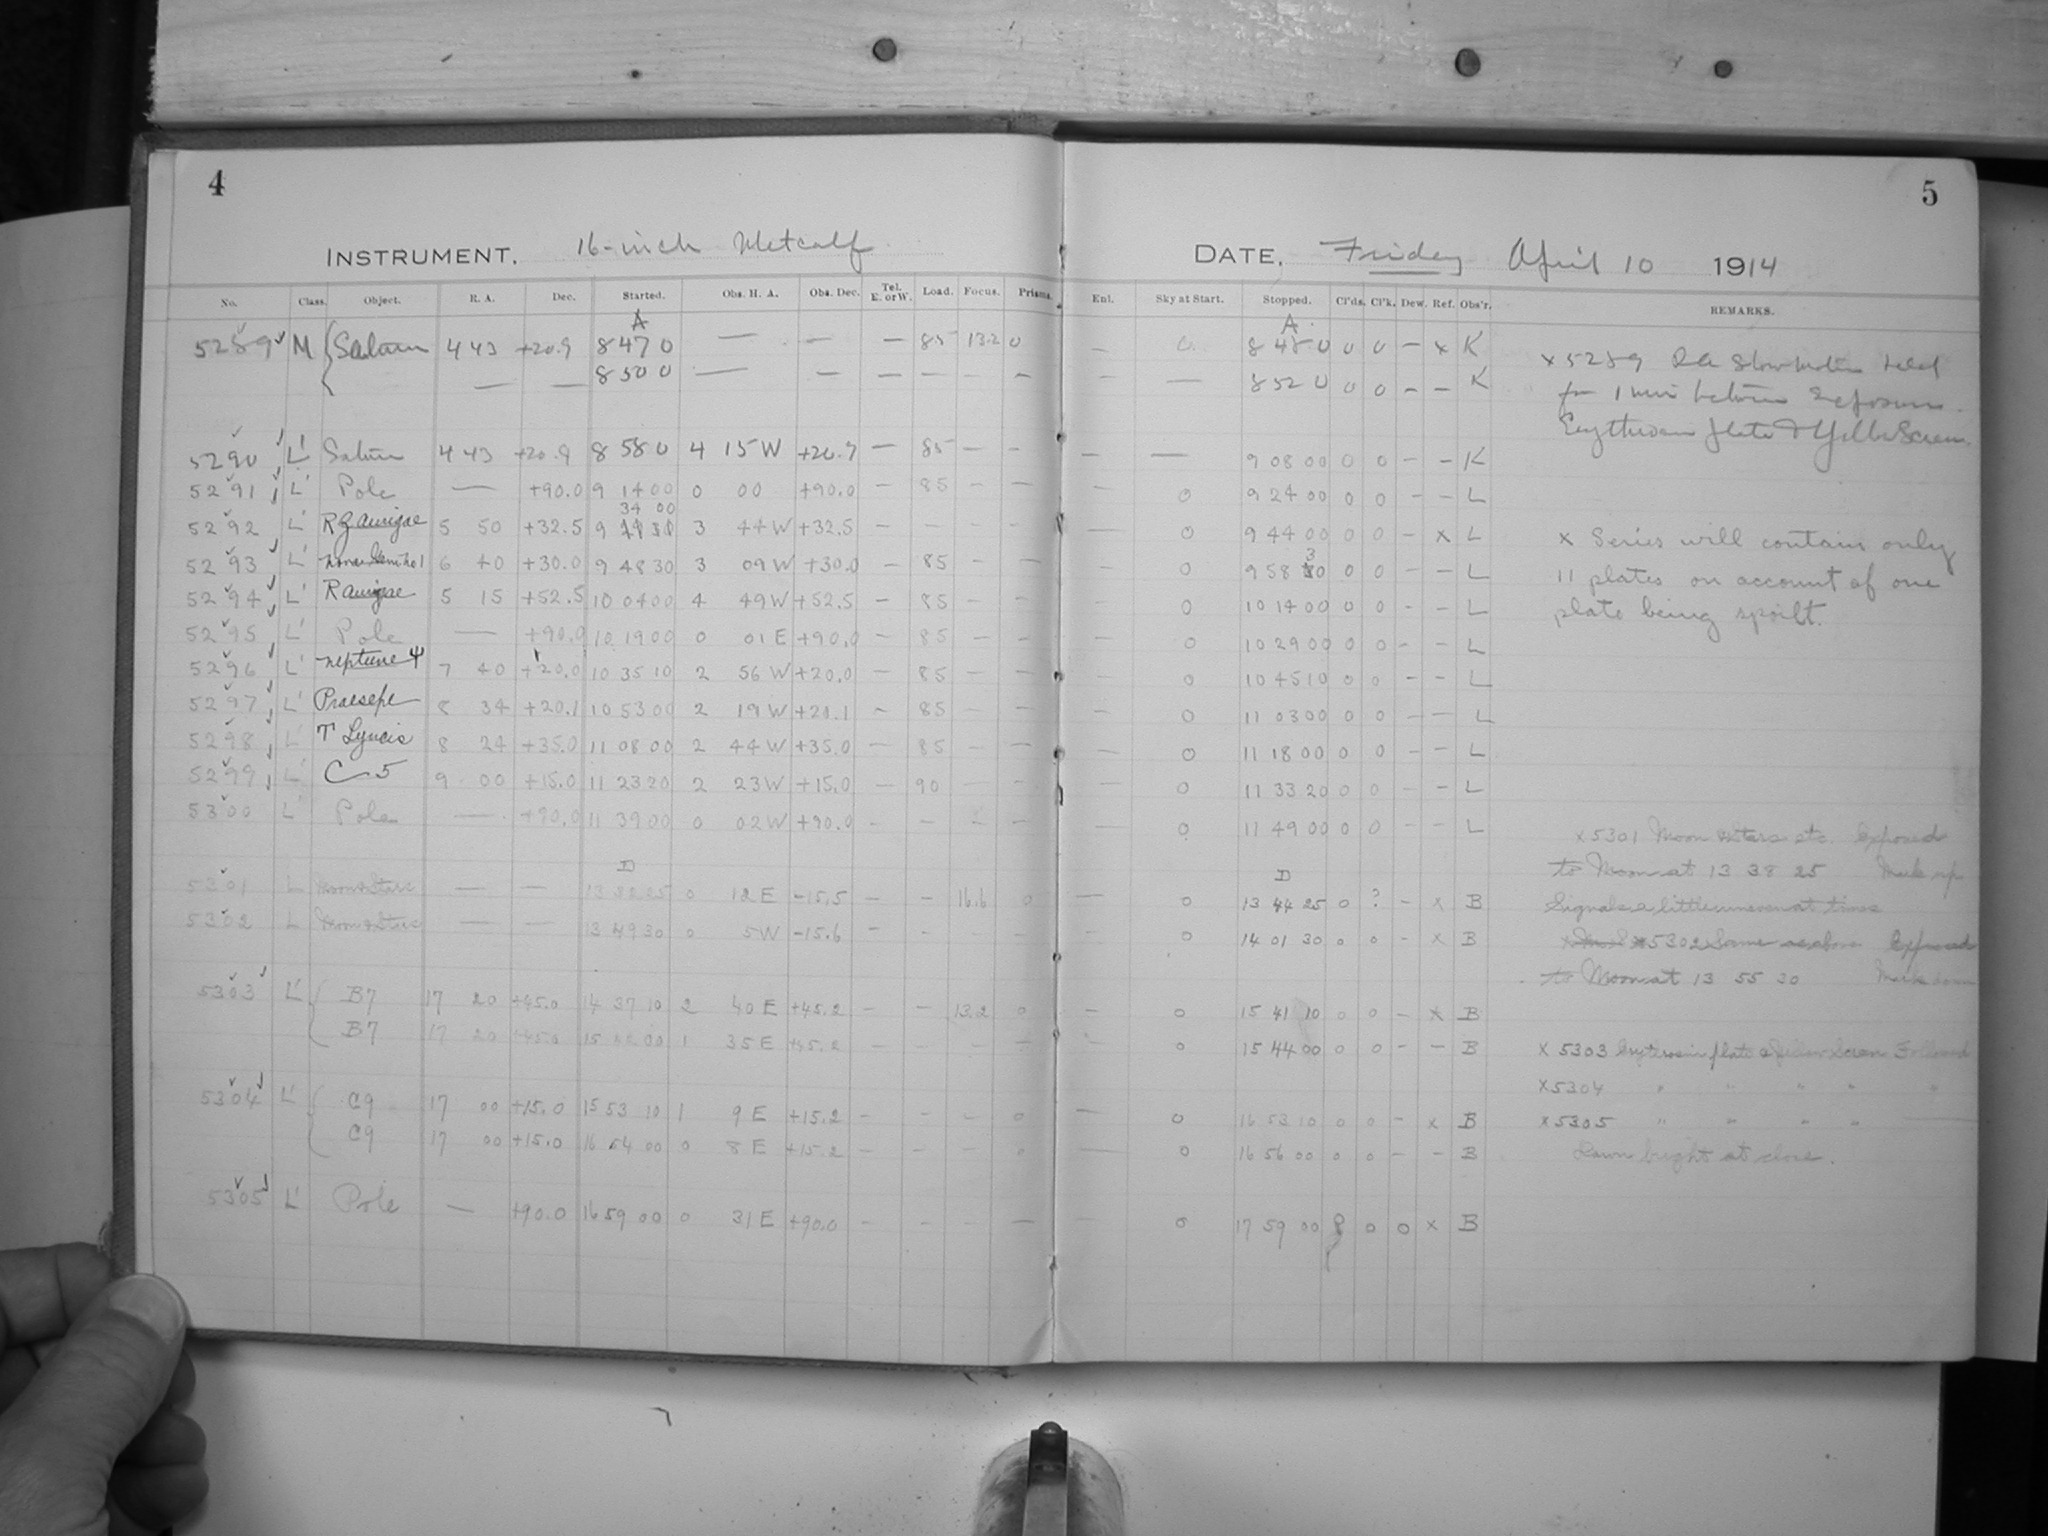 4
5
INSTRUMENT. 16-inch Metcalf
DATE. Friday April 10 1914
No. Class. Object. R. A. Dec. Started. Obs. H. A. Obs. Dec. Tel. E. or W. Load. Focus. Prisms. Enl. Sky at Start. Stopped. Cl'ds. Cl'k. Dew. Ref. Obs'r. REMARKS.
A A
5289 M Saturn 4 43 +20.9 8 47 0 — — — 85 13.2 0 — 0 8 48 0 0 0 — x K x 5289 RA Slow motion
— — 8 50 0 — — — — — — — — 8 52 0 0 0 — — K for 1 min between exposures.
5290 L' Saturn 4 43 +20.9 8 58 0 4 15 W +20.9 — 85 — — — — 9 08 00 0 0 — — K plate & Yellow Screen.
5291 L' Pole — +90.0 9 14 00 0 00 +90.0 — 85 — — — 0 9 24 00 0 0 — — L
34 00
5292 L' RZ Aurigae 5 50 +32.5 9 3 44 W +32.5 — — — — — 0 9 44 00 0 0 — x L x Series will contain only
5293 L' 6 40 +30.0 9 48 30 3 09 W +30.0 — 85 — — — 0 9 58 30 0 0 — — L 11 plates on account of one
5294 L' R Aurigae 5 15 +52.5 10 04 00 4 49 W +52.5 — 85 — — — 0 10 14 00 0 0 — — L plate being spoilt.
5295 L' Pole — +90.0 10 19 00 0 01 E +90.0 — 85 — — — 0 10 29 00 0 0 — — L
5296 L' Neptune Ψ 7 40 +20.0 10 35 10 2 56 W +20.0 — 85 — — — 0 10 45 10 0 0 — — L
5297 L' Praesepe 8 34 +20.1 10 53 00 2 19 W +20.1 — 85 — — — 0 11 03 00 0 0 — — L
5298 L' T Lyncis 8 24 +35.0 11 08 00 2 44 W +35.0 — 85 — — — 0 11 18 00 0 0 — — L
5299 L' C 5 9 00 +15.0 11 23 20 2 23 W +15.0 — 90 — — — 0 11 33 20 0 0 — — L
5300 L' Pole — +90.0 11 39 00 0 02 W +90.0 — — — — — 0 11 49 00 0 0 — — L x 5301 Moon & Stars etc. Exposed
D D to Moon at 13 38 25 Mark up
5301 L Moon & Stars — — 13 32 25 0 12 E -15.5 — — 16.6 0 — 0 13 44 25 0 ? — x B Signals a little uneven at times
5302 L Moon & Stars — — 13 49 30 0 5 W -15.6 — — — — — 0 14 01 30 0 0 — x B x 5302 Same as above Exposed
to Moon at 13 55 30 Mark down
5303 L' B7 17 20 +45.0 14 37 10 2 40 E +45.2 — — 13.2 0 — 0 15 41 10 0 0 — x B
B7 17 20 +45.0 15 42 00 1 35 E +45.2 — — — — — 0 15 44 00 0 0 — — B x 5303 plate & Yellow Screen Followed
x 5304 " " " " "
5304 L' C9 17 00 +15.0 15 53 10 1 9 E +15.2 — — — 0 — 0 16 53 10 0 0 — x B x 5305 " " " "
C9 17 00 +15.0 16 54 00 0 8 E +15.2 — — — 0 — 0 16 56 00 0 0 — — B Dawn bright at close.
5305 L' Pole — +90.0 16 59 00 0 31 E +90.0 — — — — — 0 17 59 00 0 0 x B